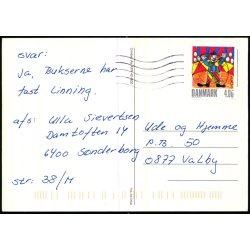 svar:
Ja, Bukserne har
fast Linning.
a/s: Ulla Sievertsen
Damtoften 14
6400 Sønderborg
str: 38/M
DANMARK 4.00
Ude og Hjemme
P.B. 50
0877 Valby